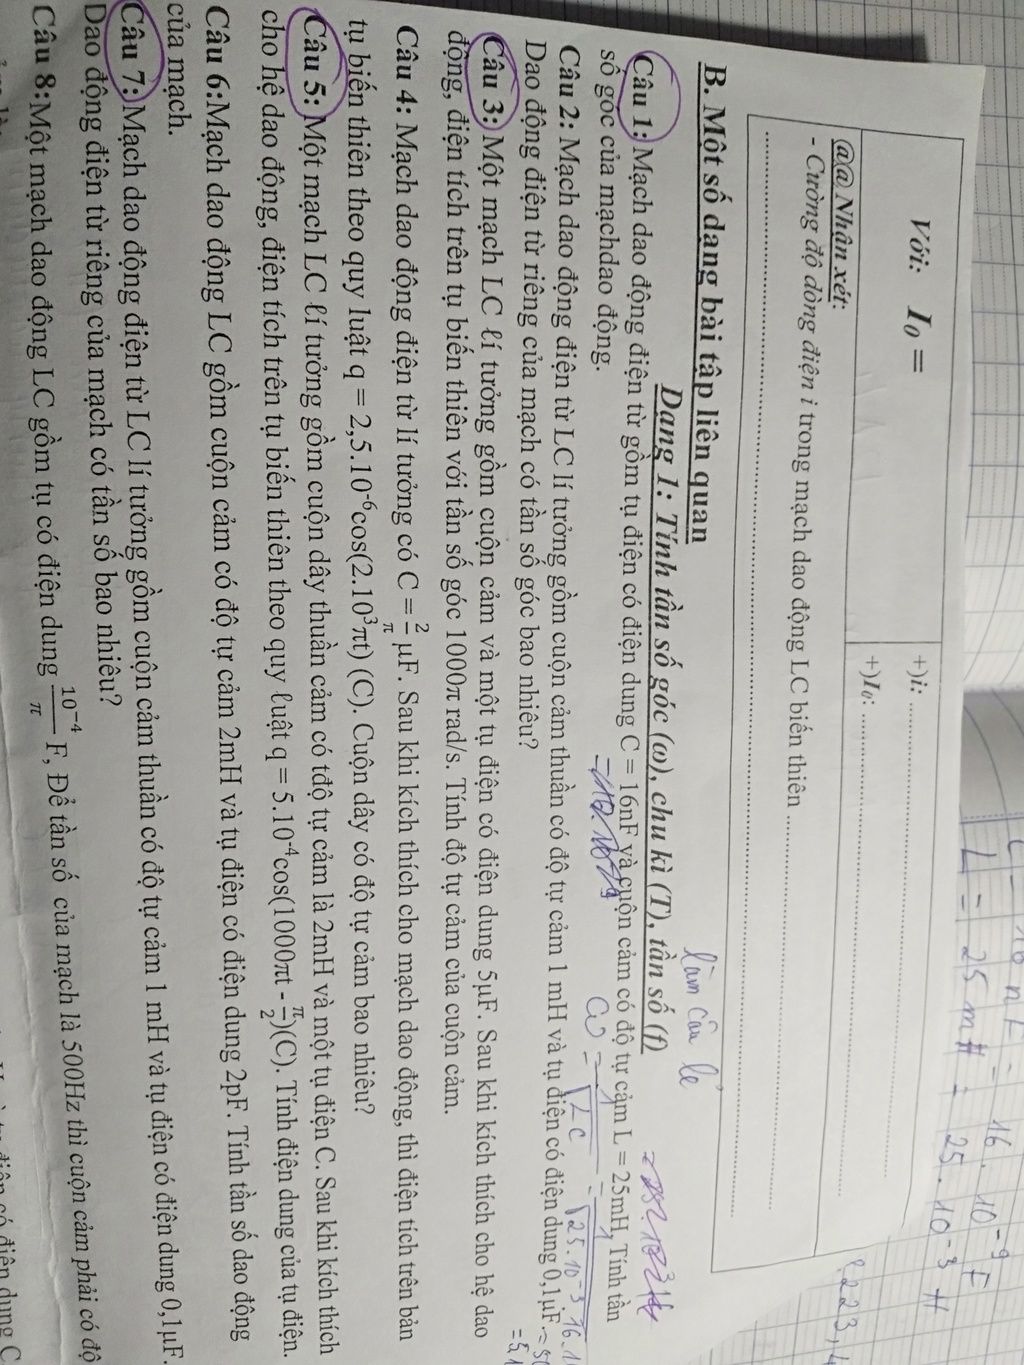 C = 16 nF = 16 . 10⁻⁹ F
L = 25 mH = 25 . 10⁻³ H
Với: I₀ =
+)i: ........................
+)I₀: ........................
@@ Nhân xét:
- Cường độ dòng điện i trong mạch dao động LC biến thiên ........................
........................
B. Một số dạng bài tập liên quan
làm câu lẻ
Dạng 1: Tính tần số góc (ω), chu kì (T), tần số (f)
Câu 1: Mạch dao động điện từ gồm tụ điện có điện dung C = 16nF và cuộn cảm có độ tự cảm L = 25mH, Tính tần
số góc của mạchdao động.
ω = 1/√LC = 1/√25.10⁻³.16.1
Câu 2: Mạch dao động điện từ LC lí tưởng gồm cuộn cảm thuần có độ tự cảm 1 mH và tụ điện có điện dung 0,1μF.
Dao động điện từ riêng của mạch có tần số góc bao nhiêu?
Câu 3: Một mạch LC lí tưởng gồm cuộn cảm và một tụ điện có điện dung 5μF. Sau khi kích thích cho hệ dao
động, điện tích trên tụ biến thiên với tần số góc 1000π rad/s. Tính độ tự cảm của cuộn cảm.
Câu 4: Mạch dao động điện từ lí tưởng có C = 2/π μF. Sau khi kích thích cho mạch dao động, thì điện tích trên bản
tụ biến thiên theo quy luật q = 2,5.10⁻⁶cos(2.10³πt) (C). Cuộn dây có độ tự cảm bao nhiêu?
Câu 5: Một mạch LC lí tưởng gồm cuộn dây thuần cảm có tđộ tự cảm là 2mH và một tụ điện C. Sau khi kích thích
cho hệ dao động, điện tích trên tụ biến thiên theo quy luật q = 5.10⁻⁴cos(1000πt - π/2)(C). Tính điện dung của tụ điện.
Câu 6:Mạch dao động LC gồm cuộn cảm có độ tự cảm 2mH và tụ điện có điện dung 2pF. Tính tần số dao động
của mạch.
Câu 7: Mạch dao động điện từ LC lí tưởng gồm cuộn cảm thuần có độ tự cảm 1 mH và tụ điện có điện dung 0,1μF.
Dao động điện từ riêng của mạch có tần số bao nhiêu?
Câu 8:Một mạch dao động LC gồm tụ có điện dung 10⁻⁴/π F, Để tần số của mạch là 500Hz thì cuộn cảm phải có độ